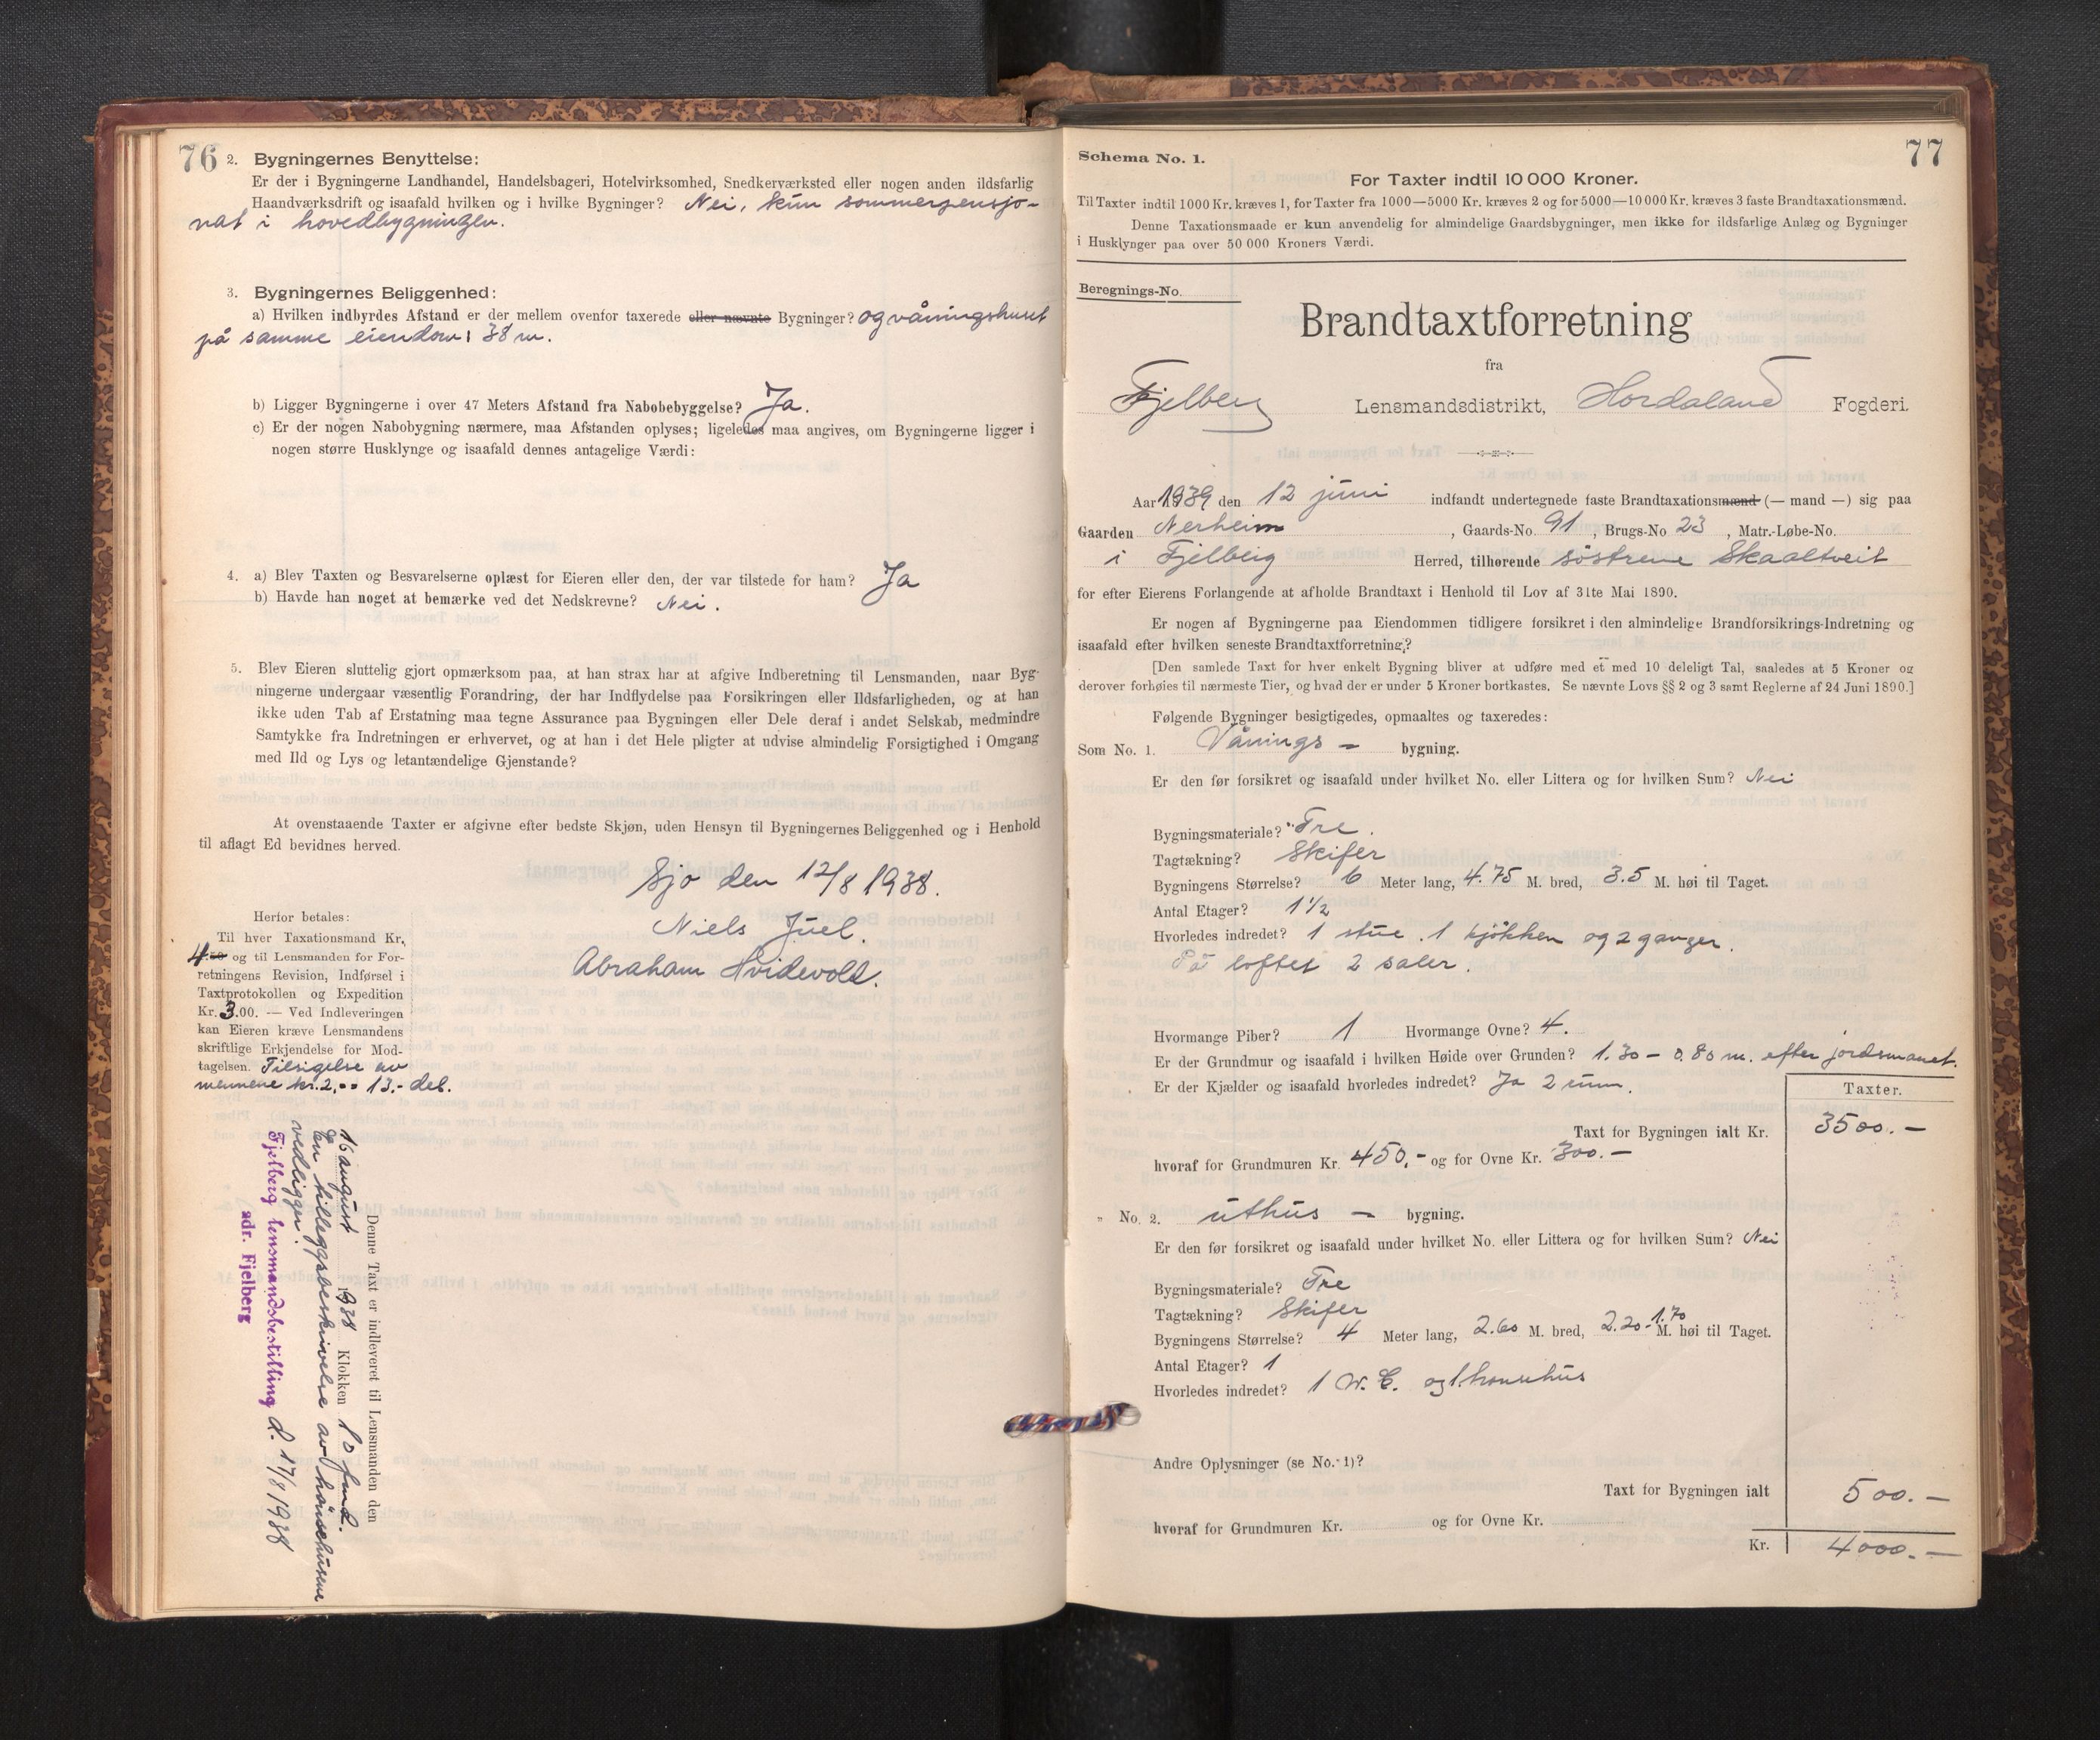 76
2. Bygningernes Benyttelse:
Er der i Bygningerne Landhandel, Handelsbageri, Hotelvirksomhed, Snedkerværksted eller nogen anden ildsfarlig
Haandværksdrift og isaafald hvilken og i hvilke Bygninger? Nei, kun sommerpensjo-
nat i hovedbygningen.
3. Bygningernes Beliggenhed:
a) Hvilken indbyrdes Afstand er der mellem ovenfor taxerede eller nævnte Bygninger? og våningshuset
på samme eiendom: 38 m.
b) Ligger Bygningerne i over 47 Meters Afstand fra Nabobebyggelse? Ja.
c) Er der nogen Nabobygning nærmere, maa Afstanden oplyses; ligeledes maa angives, om Bygningerne ligger i
nogen større Husklynge og isaafald dennes antagelige Værdi:
4. a) Blev Taxten og Besvarelserne oplæst for Eieren eller den, der var tilstede for ham? Ja
b) Havde han noget at bemærke ved det Nedskrevne? Nei.
5. Blev Eieren sluttelig gjort opmærksom paa, at han strax har at afgive Indberetning til Lensmanden, naar Byg-
ningerne undergaar væsentlig Forandring, der har Indflydelse paa Forsikringen eller Ildsfarligheden, og at han
ikke uden Tab af Erstatning maa tegne Assurance paa Bygningen eller Dele deraf i andet Selskab, medmindre
Samtykke fra Indretningen er erhvervet, og at han i det Hele pligter at udvise almindelig Forsigtighed i Omgang
med Ild og Lys og letantændelige Gjenstande?
At ovenstaaende Taxter er afgivne efter bedste Skjøn, uden Hensyn til Bygningernes Beliggenhed og i Henhold
til aflagt Ed bevidnes herved.
Sjo den 12/8 1938.
Niels Juel.
Abraham Hvidevold.
Herfor betales:
Til hver Taxationsmand Kr.
4.50 og til Lensmanden for For-
retningens Revision, Indførsel i
Taxtprotokollen og Expedition
Kr. 3.00. — Ved Indleveringen
kan Eieren kræve Lensmandens
skriftlige Erkjendelse for Mod-
tagelsen. Tilsigelse av
mennene kr. 2.00 13.- del.
Denne Taxt er indleveret til Lensmanden den
16 august 1938 Klokken 10 fmd.
En tilleggsbeskrivelse av hønsehusene
vedligger.
Fjelberg lensmandsbestilling d. 17/8 1938
adr. Fjelberg
77
Schema No. 1.
For Taxter indtil 10 000 Kroner.
Til Taxter indtil 1000 Kr. kræves 1, for Taxter fra 1000—5000 Kr. kræves 2 og for 5000—10 000 Kr. kræves 3 faste Brandtaxationsmænd.
Denne Taxationsmaade er kun anvendelig for almindelige Gaardsbygninger, men ikke for ildsfarlige Anlæg og Bygninger
i Husklynger paa over 50 000 Kroners Værdi.
Beregnings-No.
Brandtaxtforretning
fra
Fjelberg Lensmandsdistrikt, Hordaland Fogderi.
Aar 1939 den 12 juni indfandt undertegnede faste Brandtaxationsmænd (— mand —) sig paa
Gaarden Nerheim, Gaards-No. 91, Brugs-No 23, Matr.-Løbe-No.
i Fjelberg Herred, tilhørende søstrene Skaaltveit
for efter Eierens Forlangende at afholde Brandtaxt i Henhold til Lov af 31te Mai 1890.
Er nogen af Bygningerne paa Eiendommen tidligere forsikret i den almindelige Brandforsikrings-Indretning og
isaafald efter hvilken seneste Brandtaxtforretning?
[Den samlede Taxt for hver enkelt Bygning bliver at udføre med et med 10 deleligt Tal, saaledes at 5 Kroner og
derover forhøies til nærmeste Tier, og hvad der er under 5 Kroner bortkastes. Se nævnte Lovs §§ 2 og 3 samt Reglerne af 24 Juni 1890.]
Følgende Bygninger besigtigedes, opmaaltes og taxeredes:
Som No. 1. Vånings - bygning.
Er den før forsikret og isaafald under hvilket No. eller Littera og for hvilken Sum? Nei
Bygningsmateriale? Tre.
Tagtækning? Skifer
Bygningens Størrelse? 6 Meter lang, 4.75 M. bred, 3.5 M. høi til Taget.
Antal Etager? 1 1/2
Hvorledes indredet? 1 stue. 1 kjøkken og 2 ganger.
På loftet 2 saler.
Hvormange Piber? 1 Hvormange Ovne? 4.
Er der Grundmur og isaafald i hvilken Høide over Grunden? 1.30 - 0.80 m. efter jordsmonet.
Er der Kjælder og isaafald hvorledes indredet? Ja 2 rum.
Taxter.
Taxt for Bygningen ialt Kr. 3500.-
hvoraf for Grundmuren Kr. 450.- og for Ovne Kr. 300.-
" No. 2. uthus - bygning.
Er den før forsikret og isaafald under hvilket No. eller Littera og for hvilken Sum? Nei
Bygningsmateriale? Tre
Tagtækning? Skifer
Bygningens Størrelse? 4 Meter lang, 2.60 M. bred, 2.20-1.70 M. høi til Taget.
Antal Etager? 1
Hvorledes indredet? 1 W.C. og 1 hønsehus
Andre Oplysninger (se No. 1)?
Taxt for Bygningen ialt 500.-
hvoraf for Grundmuren Kr. og for Ovne Kr.
Kr. 4000.-